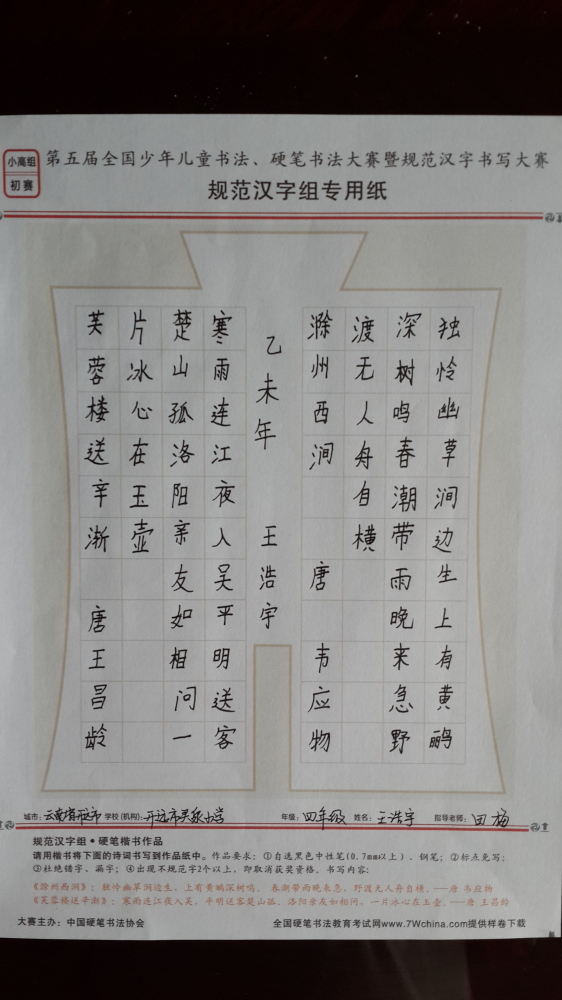 小高组
初赛
第五届全国少年儿童书法、硬笔书法大赛暨规范汉字书写大赛
规范汉字组专用纸
独怜幽草涧边生上有黄鹂
深树鸣春潮带雨晚来急野
渡无人舟自横
滁州西涧 唐 韦应物
乙未年 王浩宇
寒雨连江夜入吴平明送客
楚山孤洛阳亲友如相问一
片冰心在玉壶
芙蓉楼送辛渐 唐王昌龄
城市：云南省开远市 学校(机构)：开远市灵泉小学 年级：四年级 姓名：王浩宇 指导老师：田梅
规范汉字组•硬笔楷书作品
请用楷书将下面的诗词书写到作品纸中。作品要求：①自选黑色中性笔(0.7mm以上)、钢笔；②标点免写；
③杜绝错字、漏字；④出现不规范字2个以上，即取消获奖资格。书写内容：
《滁州西涧》：独怜幽草涧边生，上有黄鹂深树鸣。春潮带雨晚来急，野渡无人舟自横。——唐 韦应物
《芙蓉楼送辛渐》：寒雨连江夜入吴，平明送客楚山孤。洛阳亲友如相问，一片冰心在玉壶。——唐 王昌龄
大赛主办：中国硬笔书法协会 全国硬笔书法教育考试网www.7Wchina.com提供样卷下载